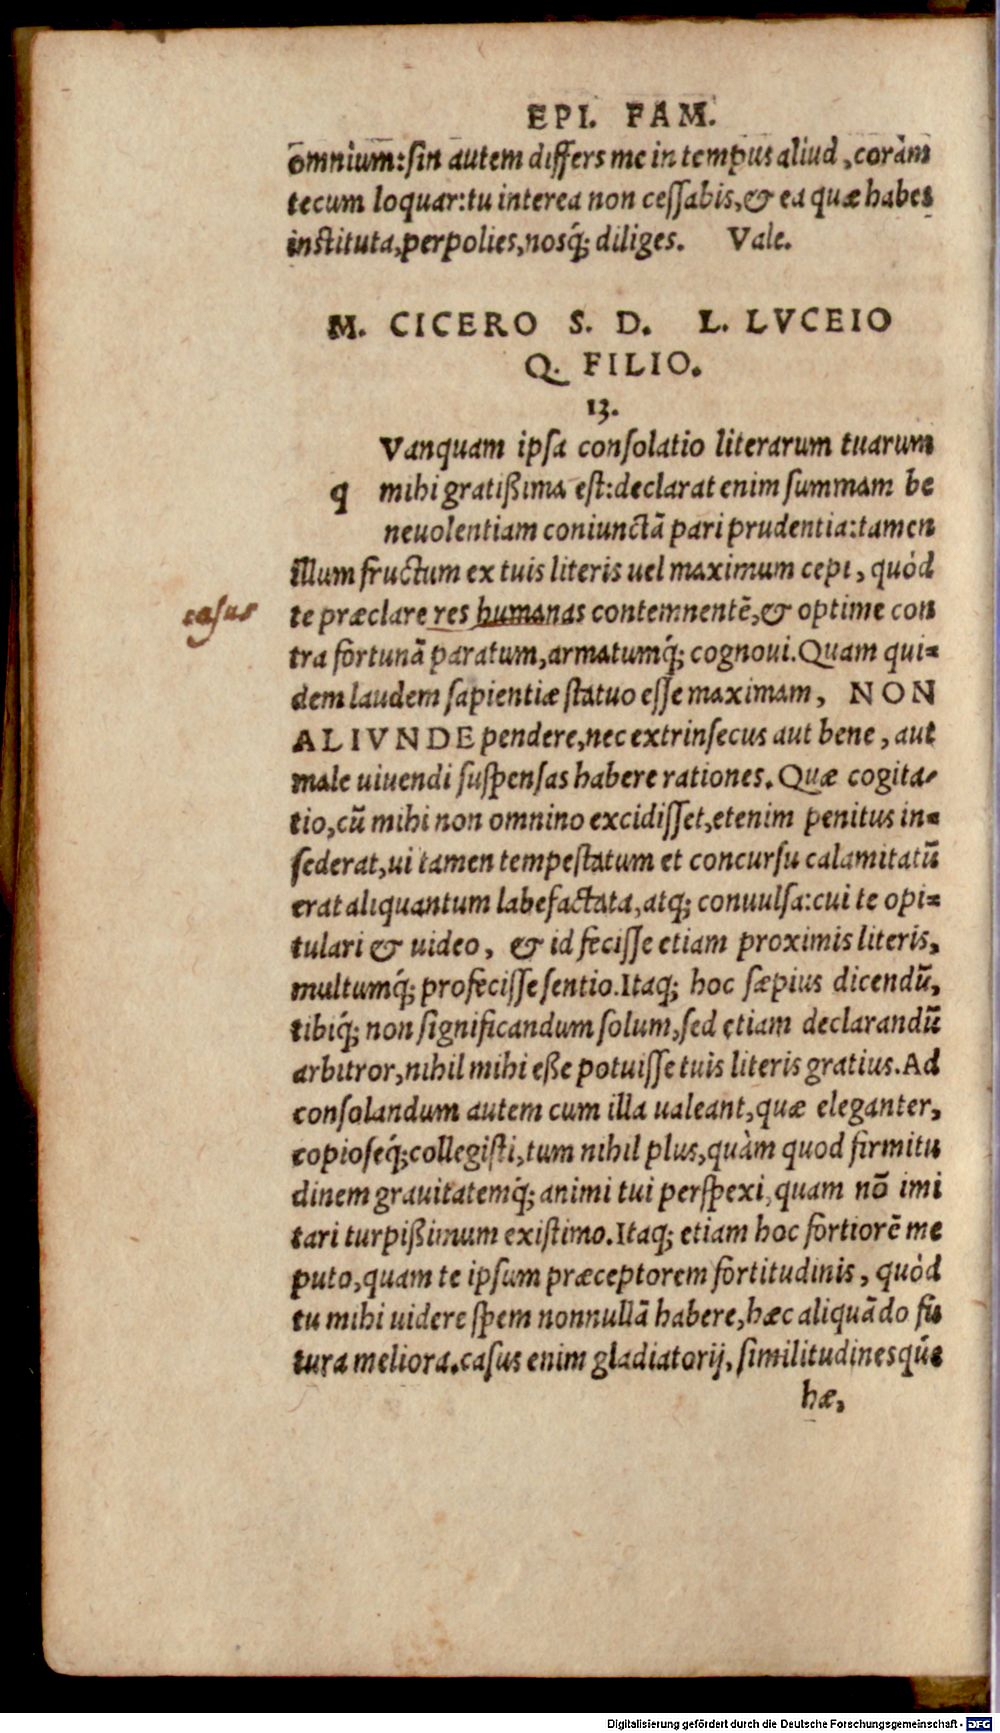 EPI. FAM.
omnium: sin autem differs me in tempus aliud, coràm
tecum loquar: tu interea non cessabis, & ea quæ habes
instituta, perpolies, nosq́; diliges. Vale.
M. CICERO S. D. L. LVCEIO
Q. FILIO.
13.
Vanquam ipsa consolatio literarum tuarum
q mihi gratißima est: declarat enim summam be
neuolentiam coniunctã pari prudentia: tamen
illum fructum ex tuis literis uel maximum cepi, quòd
casus
te præclare res humanas contemnentẽ, & optime con
tra fortunã paratum, armatumq́; cognoui. Quam qui=
dem laudem sapientiæ statuo esse maximam, NON
ALIVNDE pendere, nec extrinsecus aut bene, aut
male uiuendi suspensas habere rationes. Quæ cogita-
tio, cũ mihi non omnino excidisset, etenim penitus in=
sederat, ui tamen tempestatum et concursu calamitatũ
erat aliquantum labefactata, atq; conuulsa: cui te opi=
tulari & uideo, & id fecisse etiam proximis literis,
multumq́; profecisse sentio. Itaq; hoc sæpius dicendũ,
tibiq́; non significandum solum, sed etiam declarandũ
arbitror, nihil mihi eße potuisse tuis literis gratius. Ad
consolandum autem cum illa ualeant, quæ eleganter,
copioseq́; collegisti, tum nihil plus, quàm quod firmitu
dinem grauitatemq́; animi tui perspexi, quam nõ imi
tari turpißimum existimo. Itaq; etiam hoc fortiorẽ me
puto, quam te ipsum præceptorem fortitudinis, quòd
tu mihi uidere spem nonnullã habere, hæc aliquãdo fu
tura meliora. casus enim gladiatorij, similitudinesq́ue
hæ,
Digitalisierung gefördert durch die Deutsche Forschungsgemeinschaft - DFG